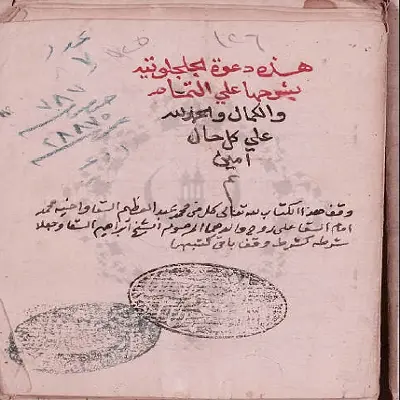 ١٢٦
عدد
٧
٧٨٧
٢٨٨٧٥
هذه دعوة الجلجلوتيه
بشرحها علي التمام
والكمال والحمد لله
علي كل حال
امين
م
وقف هذا الكتاب لله تعالى كل من محمد عبد العظيم السقا واخيه محمد
امام السقا على روح والدهما المرحوم الشيخ ابراهيم السقا وجعلا
شرطه كشرط وقف باقي كتبهما